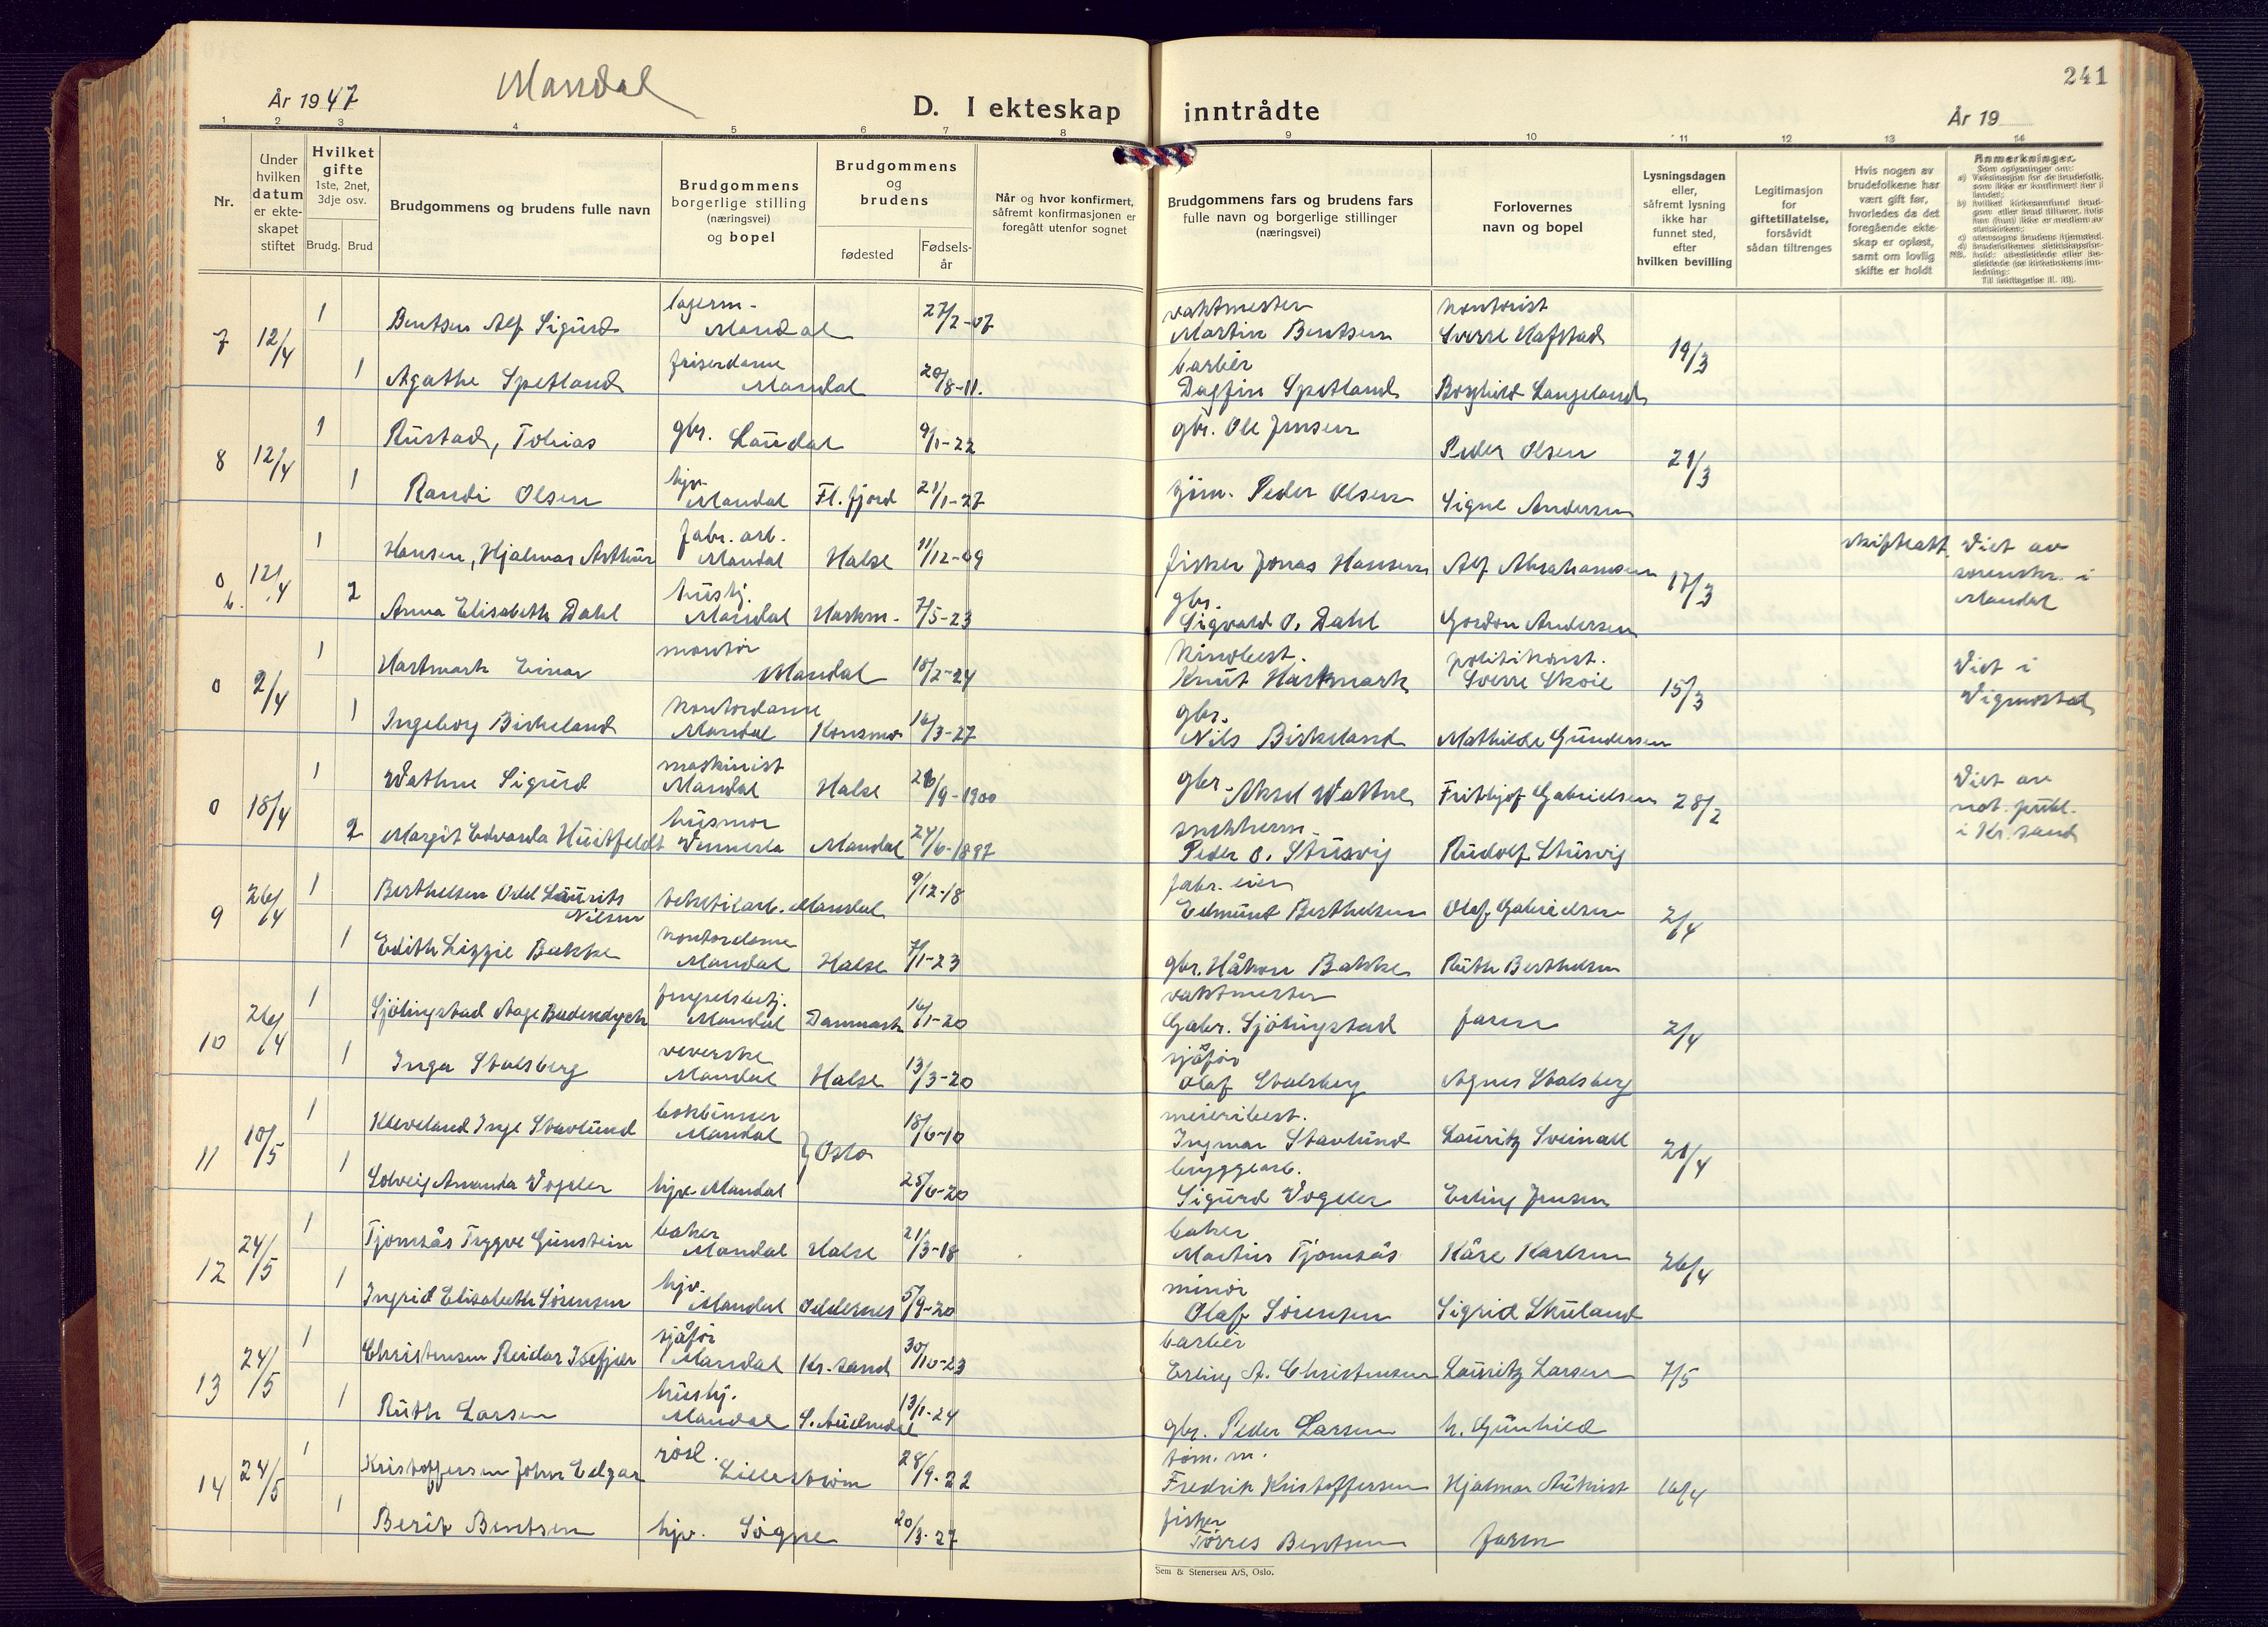 241
År 1947
Mandal
D. I ekteskap inntrådte
År 19
1 2 3 4 5 6 7 8 9 10 11 12 13 14
Nr.
Under hvilken datum er ekte-skapet stiftet
Hvilket gifte 1ste, 2net, 3dje osv.
Brudg. Brud
Brudgommens og brudens fulle navn
Brudgommens borgerlige stilling (næringsvei) og bopel
Brudgommens og brudens
fødested
Fødsels-år
Når og hvor konfirmert, såfremt konfirmasjonen er foregått utenfor sognet
Brudgommens fars og brudens fars fulle navn og borgerlige stillinger (næringsvei)
Forlovernes navn og bopel
Lysningsdagen eller, såfremt lysning ikke har funnet sted, efter hvilken bevilling
Legitimasjon for giftetillatelse, forsåvidt sådan tiltrenges
Hvis nogen av brudefolkene har vært gift før, hvorledes da det foregående ekte-skap er opløst, samt om lovlig skifte er holdt
Anmerkninger.
7 12/4 1 Bentsen Alf Sigurd lagerm. Mandal 27/2-07 vaktmester Martin Bentsen kontorist Sverre Hafstad 19/3
1 Agathe Spetland friserdame Mandal 20/8-11. barbér Dagfin Spetland Borghild Langeland
8 12/4 1 Rustad, Tobias gbr. Laudal 9/1-22 gbr. Ole Jensen Peder Olsen 21/3
1 Randi Olsen hjv. Mandal Fl. fjord 21/1-27 Peder Olsen Signe Andersen
0 12/4 1 Hansen, Hjalmar Arthur fabr. arb. Mandal Halse 11/12-09 fisker Jonas Hansen Alf Abrahamsen 17/3 skifteatt. Viet av sorenskr. i Mandal
2 Anna Elisabeth Dahl hushj. Mandal Harkm. 7/5-23 gbr. Sigvald O. Dahl Gordon Andersen
0 2/4 1 Hartmark Einar montør Mandal 18/2-24 kinobest. Knut Hartmark politikonst. Sverre Skoie 15/3 Viet i Vigmostad
1 Ingeborg Birkeland kontordame Mandal Konsmo 16/3-27 gbr. Nils Birkeland Mathilde Gundersen
0 18/4 1 Wathne Sigurd maskinist Mandal Halse 26/9-1900 gbr. Aksel Wathne Frithjof Gabrielsen 28/2 Viet av not. publ. i Kr.sand
2 Margit Edvarda Huitfeldt husmor Vennesla Mandal 24/6-1897 snekkerm. Peder O. Stusvig Rudolf Stusvig
9 26/4 1 Berthelsen Odd Laurits Nilsen tekstilarb. Mandal 9/12-18 fabr. eier Edmund Berthelsen Olaf Gabrielsen 2/4
1 Edith Lizzie Bakke kontordame Mandal Halse 7/1-23 gbr. Håkon Bakke Ruth Berthelsen
10 26/4 1 Sjölingstad Aage fengselsbetj. Mandal Danmark 16/1-20 vaktmester Gabr. Sjölingstad faren 2/4
1 Inga Stalsberg veverske Mandal Halse 13/3-20 sjåför Olaf Stalsberg Agnes Stalsberg
11 10/5 1 Kleveland Inge Stavlund bokbinner Mandal } Oslo 18/6-10 meieribest. Ingmar Stavlund Lauritz Sveinall 21/4
1 Solveig Amanda Vogeler hjv. Mandal 25/6-20 bryggearb. Sigurd Vogeler Erling Jensen
12 24/5 1 Tjomsås Trygve Gunstein baker Mandal Halse 21/3-18 baker Martin Tjomsås Kåre Karlsen 26/4
1 Ingrid Elisabeth Sörensen hjv. Mandal Oddernes 5/9-20 minör Olaf Sörensen Sigrid Skuland
13 24/5 1 Christensen Reidar Isefjær sjåför Mandal Kr.sand 30/10-23 barbér Erling A. Christensen Lauritz Larsen 7/5
1 Ruth Larsen hushj. Mandal S. Audnedal 13/1-24 gbr. Peder Larsen h. Gunhild
14 24/5 1 Kristoffersen John Edgar rörl. Lilleström 28/9-22 töm. m. Fredrik Kristoffersen Hjalmar Aukrust 16/4
1 Berit Bentsen hjv. Sögne 20/3-27 fisker Törres Bentsen faren
Sem & Stenersen A/S, Oslo.